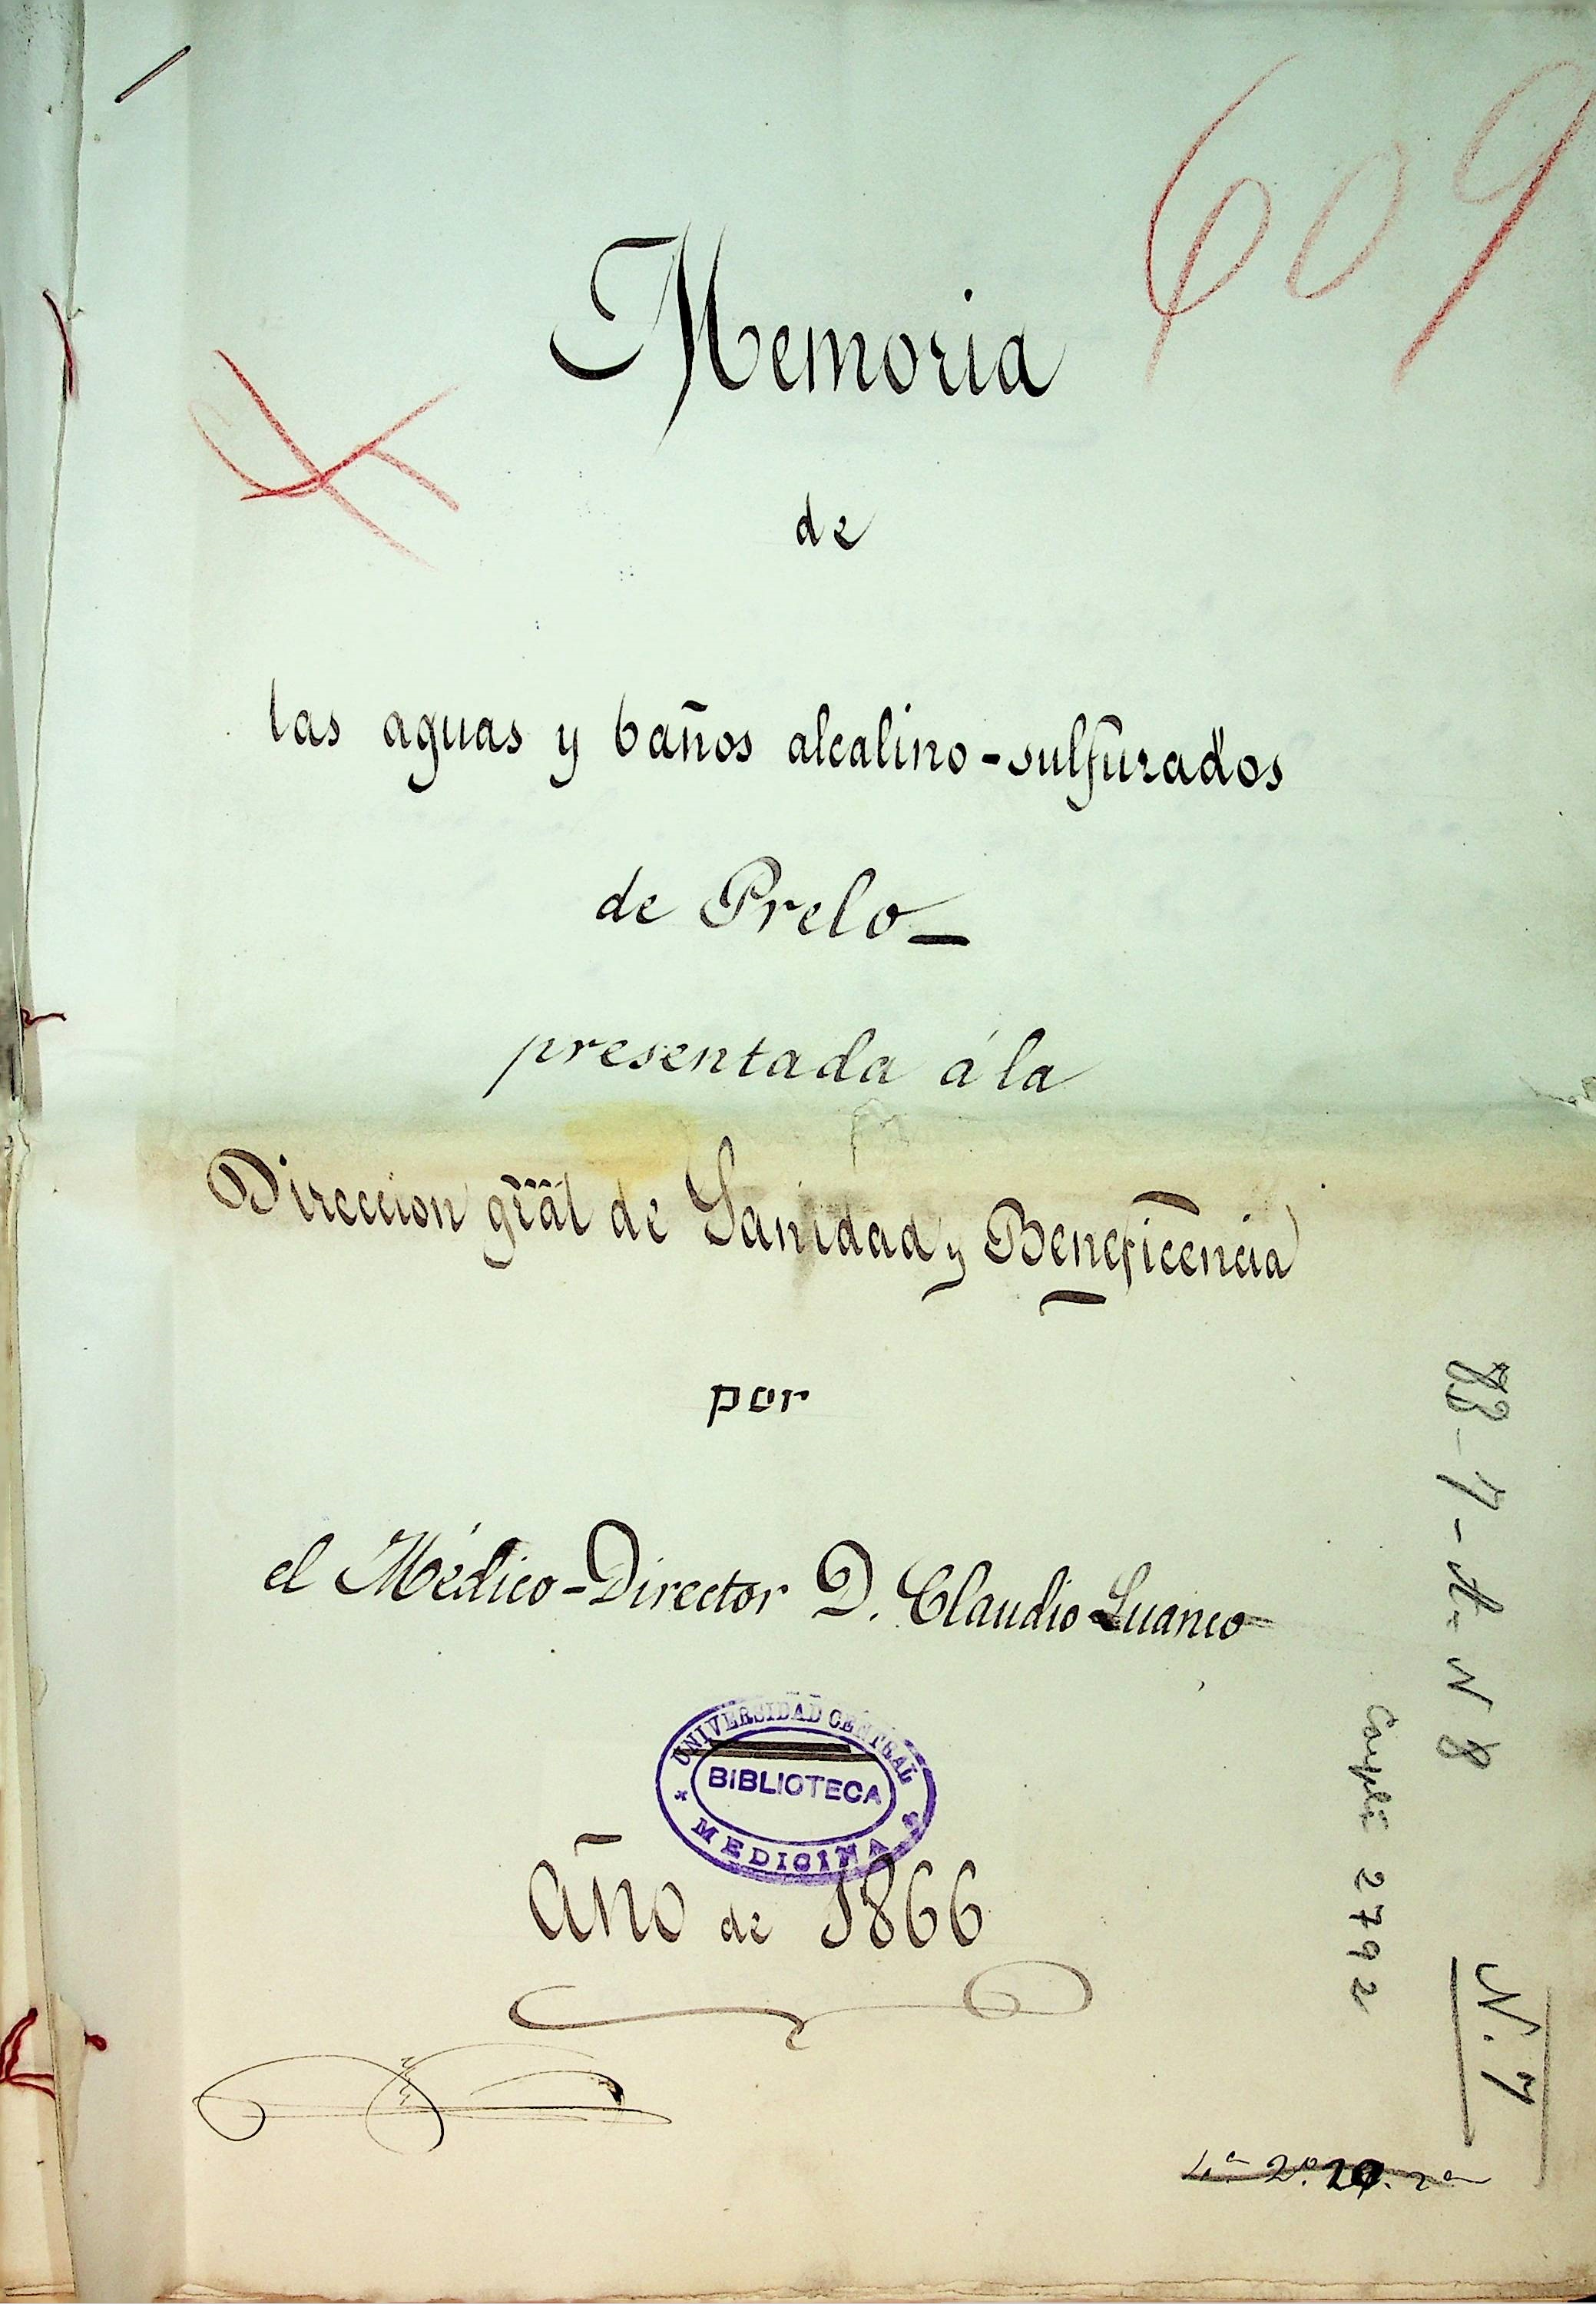 609
Memoria
de
las aguas y baños alcalino-sulfurados
de Prelo
presentada á la
Direccion gral de Sanidad y Beneficencia
por
el Médico-Director D. Claudio Luanco
UNIVERSIDAD CENTRAL
BIBLIOTECA
MEDICINA
Año de 1866
83-7-A-N 8
2792
N. 7